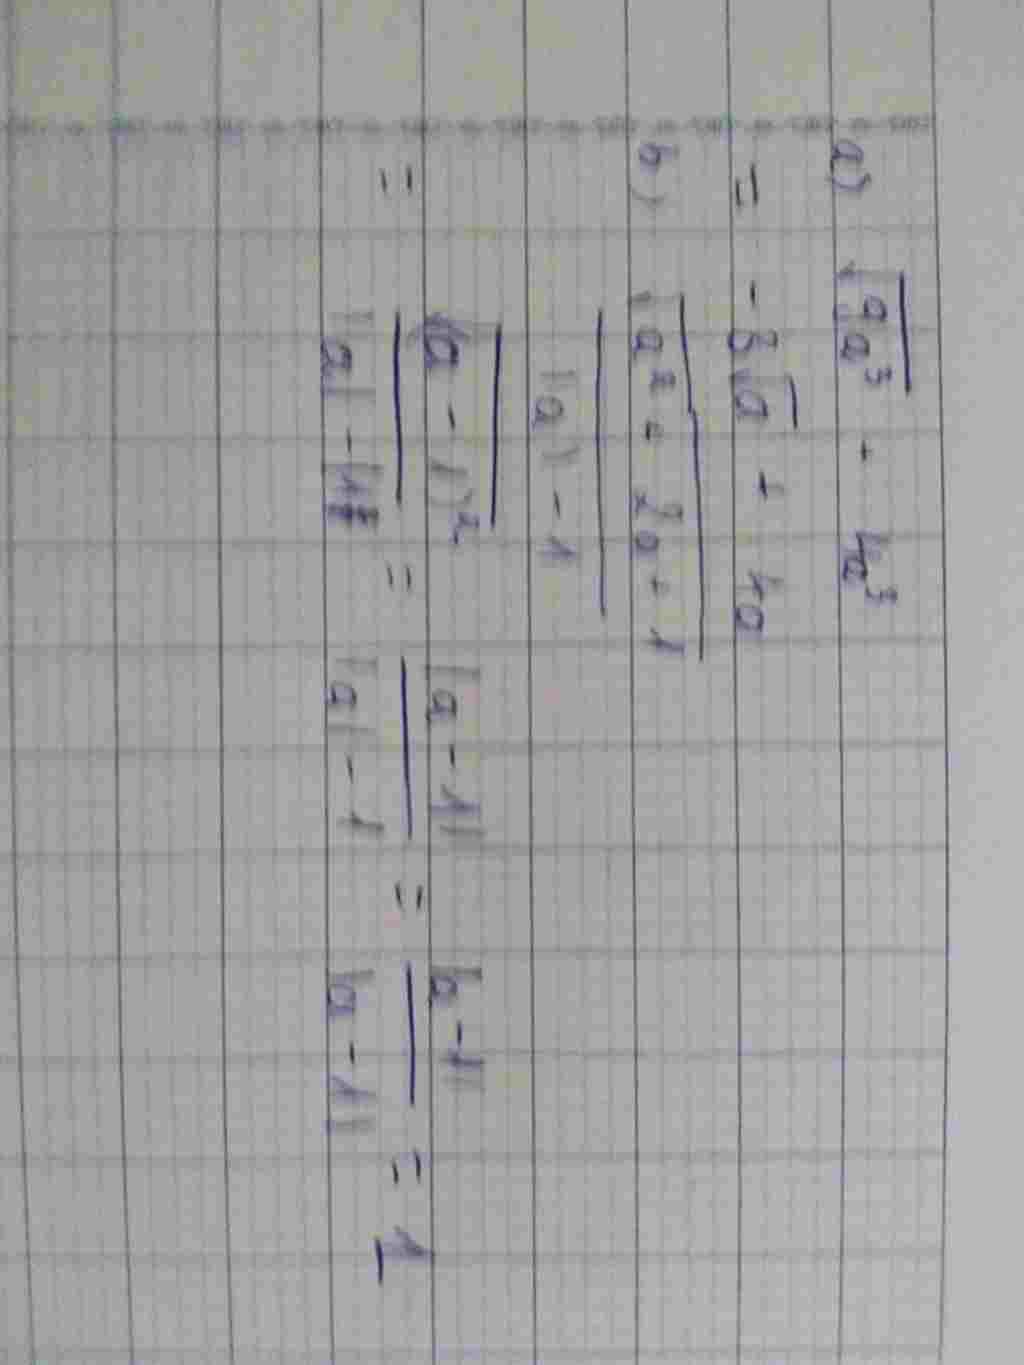 a) √9a³ + 4a³
= -3√a + 4a
b) √a² + 2a + 1
|a| - 1
= √(a - 1)² / |a| - 1 = |a - 1| / |a| - 1 = |a - 1| / |a - 1| = 1